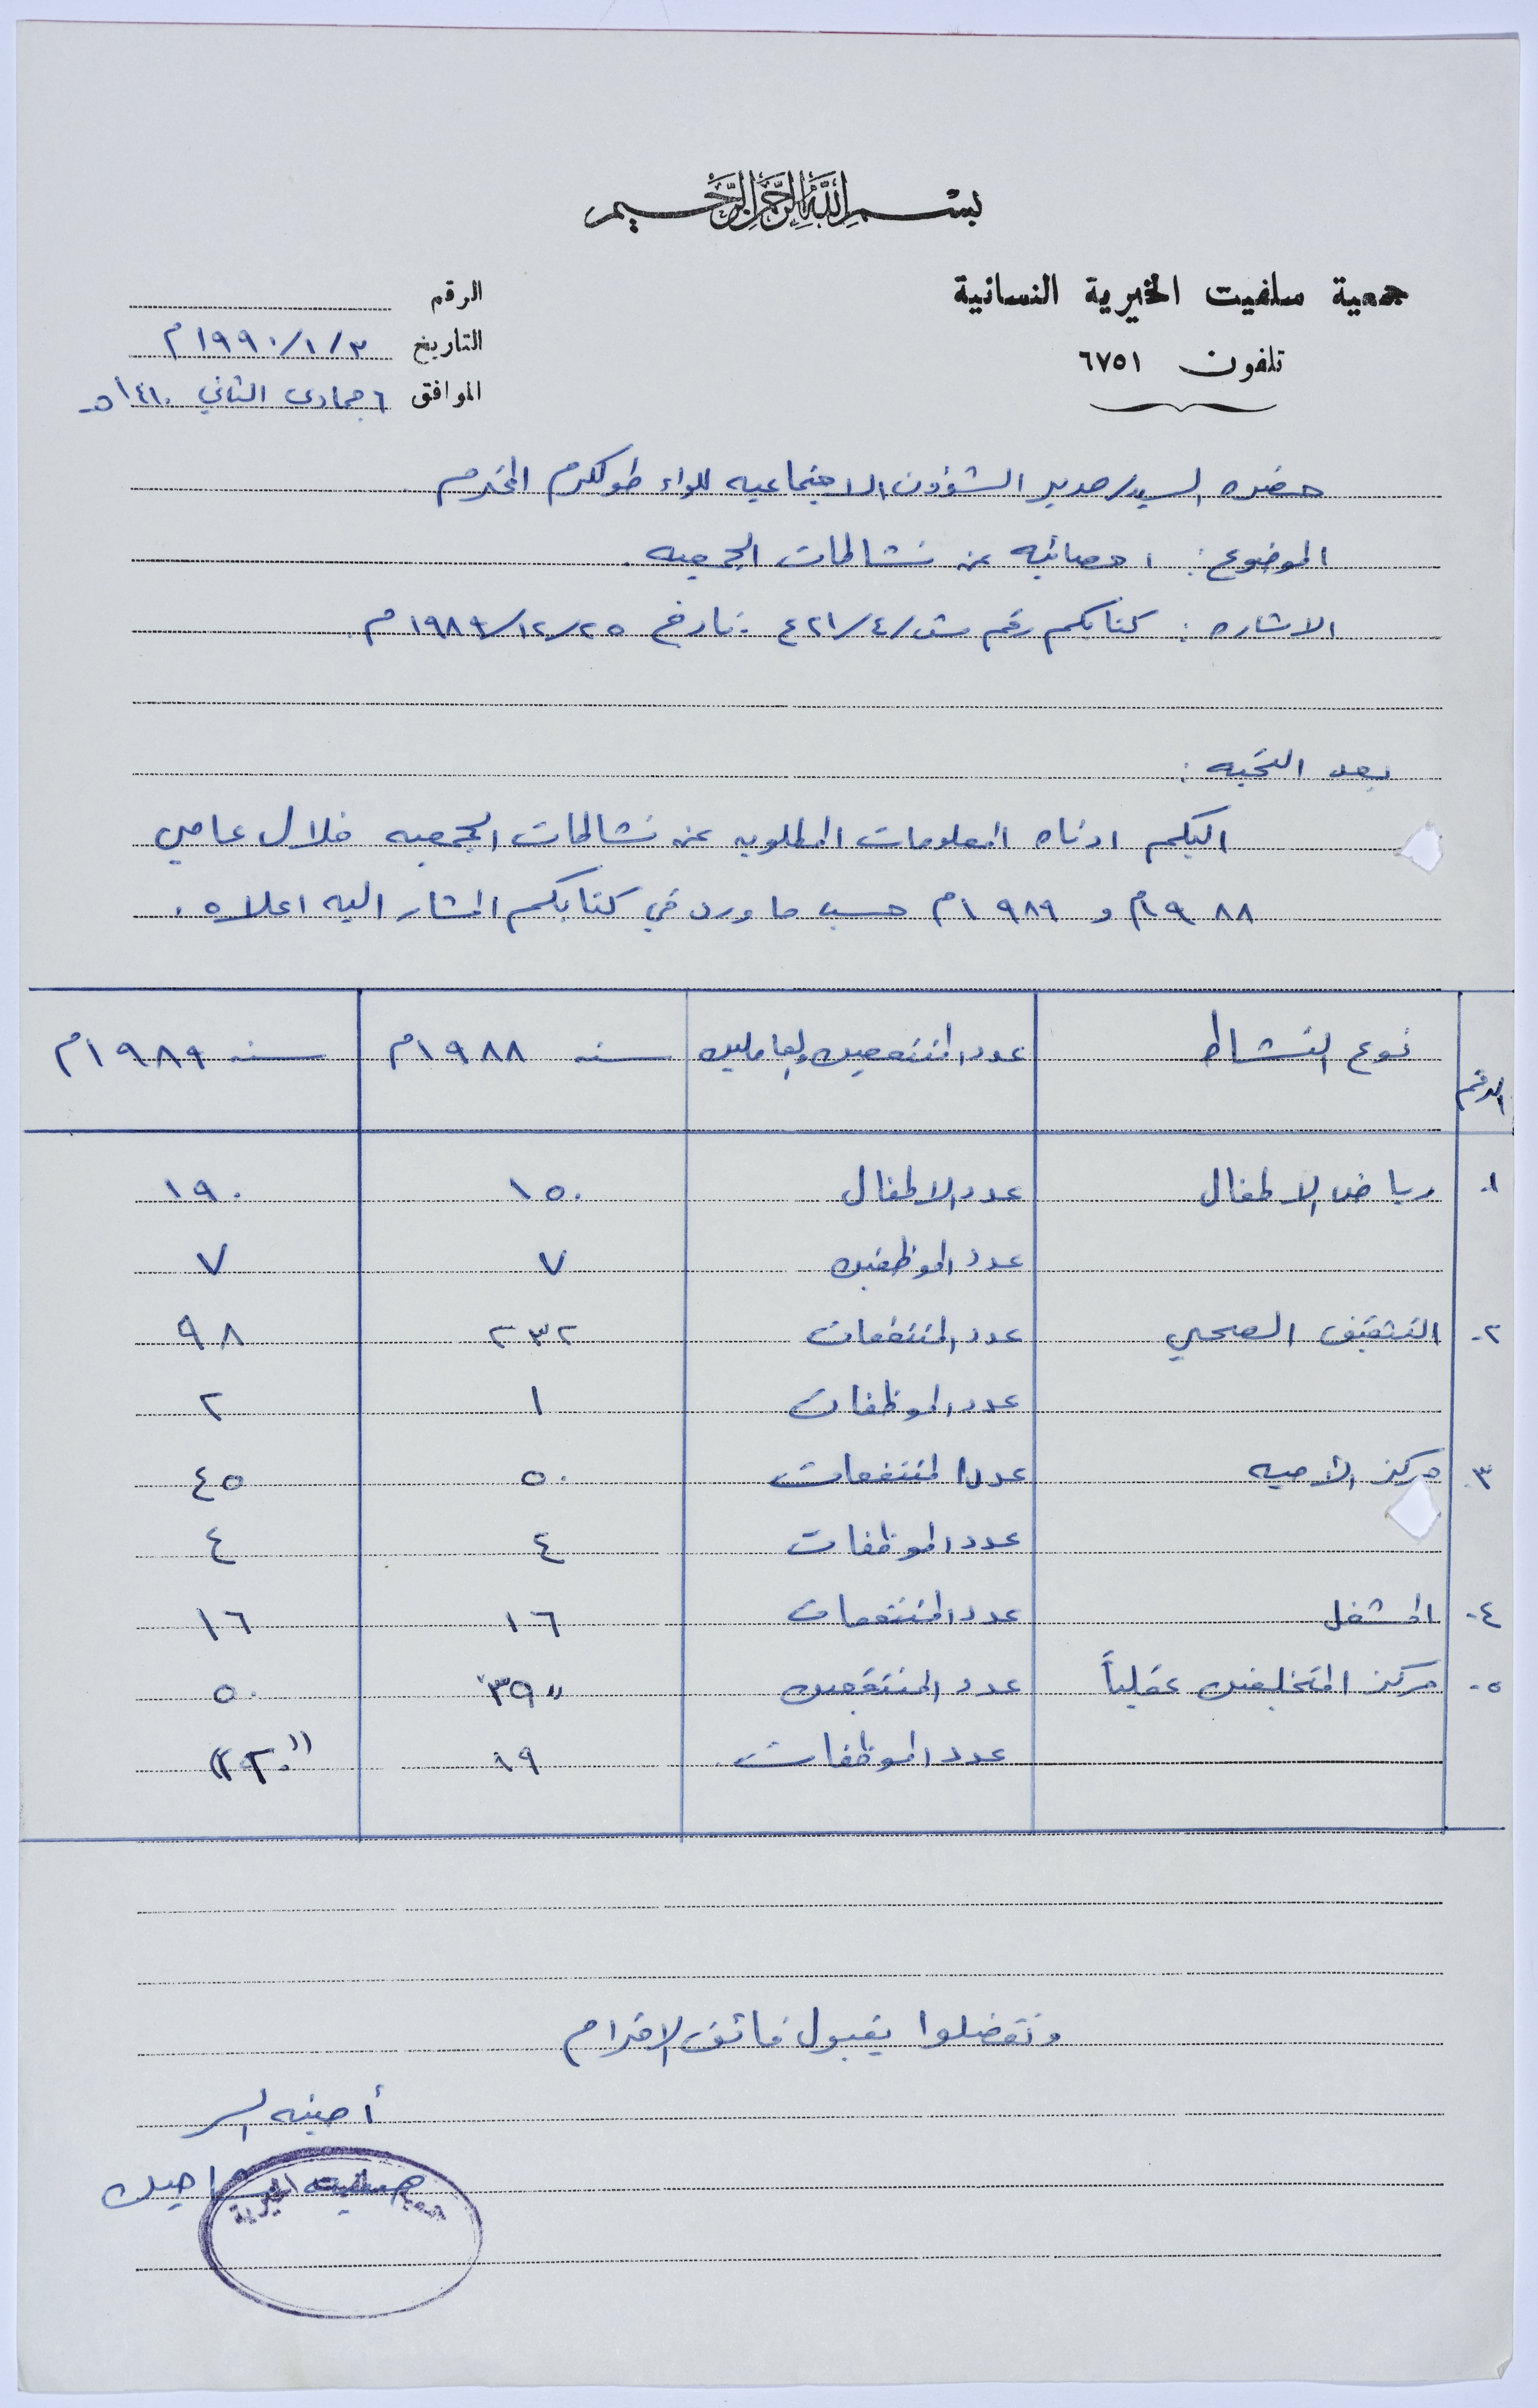 بسم الله الرحمن الرحيم
جمعية سلفيت الخيرية النسائية
تلفون ٦٧٥١
الرقم
التاريخ ٣/١/١٩٩٠م
الموافق ٦ جمادى الثاني ١٤١٠هـ
حضرة السيد/ مدير الشؤون الاجتماعيه للواء طولكرم المحترم
الموضوع: احصائيه عن نشاطات الجمعيه.
الاشاره: كتابكم رقم ش/٤/٤٢١ تاريخ ٢٥/١٢/١٩٨٩م.
بعد التحيه:
اليكم ادناه المعلومات المطلوبه عن نشاطات الجمعيه خلال عامي
١٩٨٨م و ١٩٨٩م حسب ما ورد في كتابكم المشار اليه اعلاه.
الرقم نوع النشاط عدد المنتفعين والعاملين سنه ١٩٨٨م سنه ١٩٨٩م
١- رياض الاطفال عدد الاطفال ١٥٠ ١٩٠
عدد الموظفين ٧ ٧
٢- التثقيف الصحي عدد المنتفعات ٢٣٢ ٩٨
عدد الموظفات ١ ٢
٣- مركز الاميه عدد المنتفعات ٥٠ ٤٥
عدد الموظفات ٤ ٤
٤- المشغل عدد المنتفعات ١٦ ١٦
٥- مركز المتخلفين عقلياً عدد المنتفعين "٣٩" ٥٠
عدد الموظفات ١٩ "٢٢٠"
وتفضلوا بقبول فائق الاحترام
أمينه السر